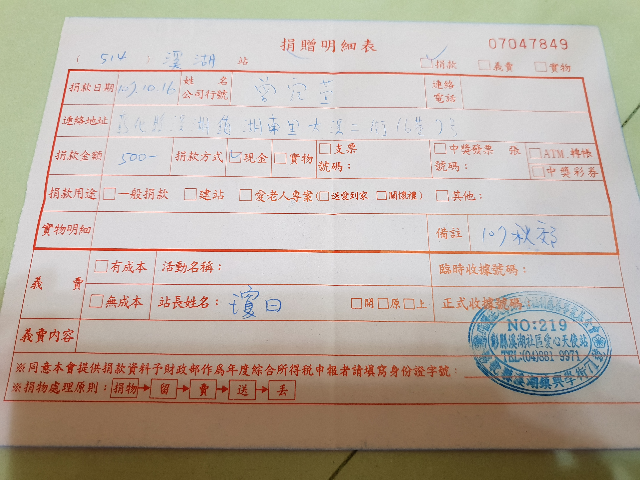 捐贈明細表 07047849
(514) 溪湖 站 ☑捐款 □義賣 □實物
捐款日期 107.10.16 姓名 公司行號 連絡電話
連絡地址
捐款金額 500- 捐款方式 ☑現金 □實物 □支票 號碼： □中獎發票 張 號碼： □ATM.轉帳 □中獎彩券
捐款用途 □一般捐款 □建站 □愛老人專案(□送愛到家 □關懷禮) □其他：
實物明細 備註 107秋節
義賣 □有成本 活動名稱： 臨時收據號碼：
□無成本 站長姓名： □開□原□上 正式收據號碼：
義賣內容
NO:219
彰縣溪湖社區愛心天使站
TEL:(04)881 9971
※同意本會提供捐款資料予財政部作為年度綜合所得稅申報者請填寫身份證字號：
※捐物處理原則：捐物→留→賣→送→丟